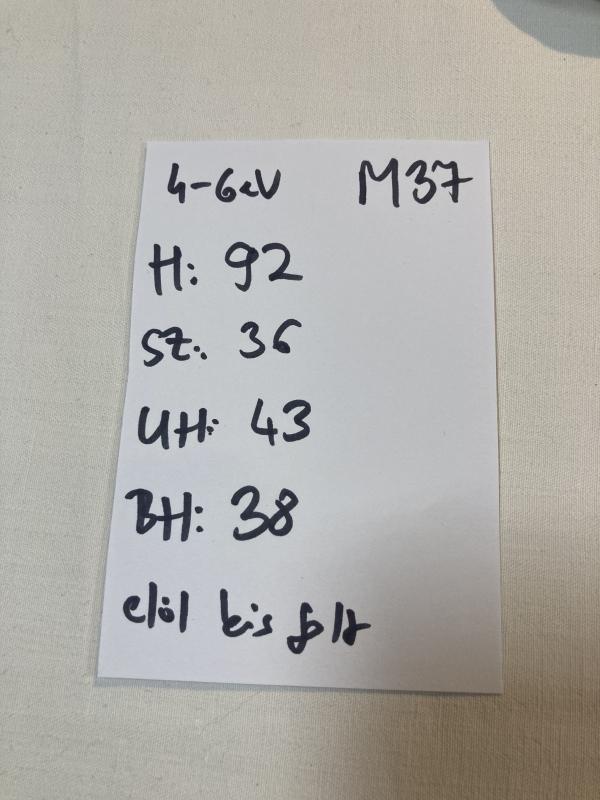 4-6év M37
H: 92
SZ: 36
UH: 43
BH: 38
elöl kis folt